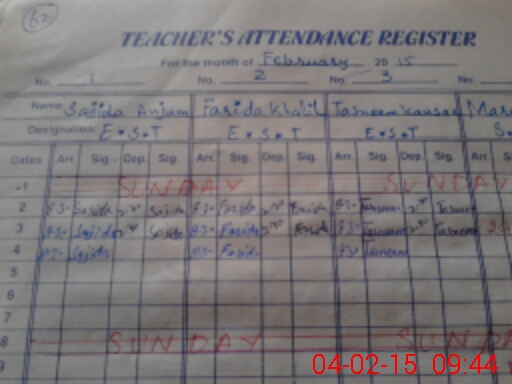 62
TEACHER'S ATTENDANCE REGISTER
For the month of February 2015
No. 1 No. 2 No. 3 No.
Name Sajida Anjum Farida Khalil Tasneem Kausar
Designation E.S.T E.S.T E.S.T
Dates Arr. Sig. Dep. Sig. Arr. Sig. Dep. Sig. Arr. Sig. Dep. Sig. Arr.
1 SUNDAY SUNDAY
2 Sajida Sajida Farida Farida Tasneem Tasneem
3 Sajida Sajida Farida Farida Tasneem Tasneem
4 Sajida Farida
5
6
7
8 SUNDAY SUNDA
9
04-02-15 09:44